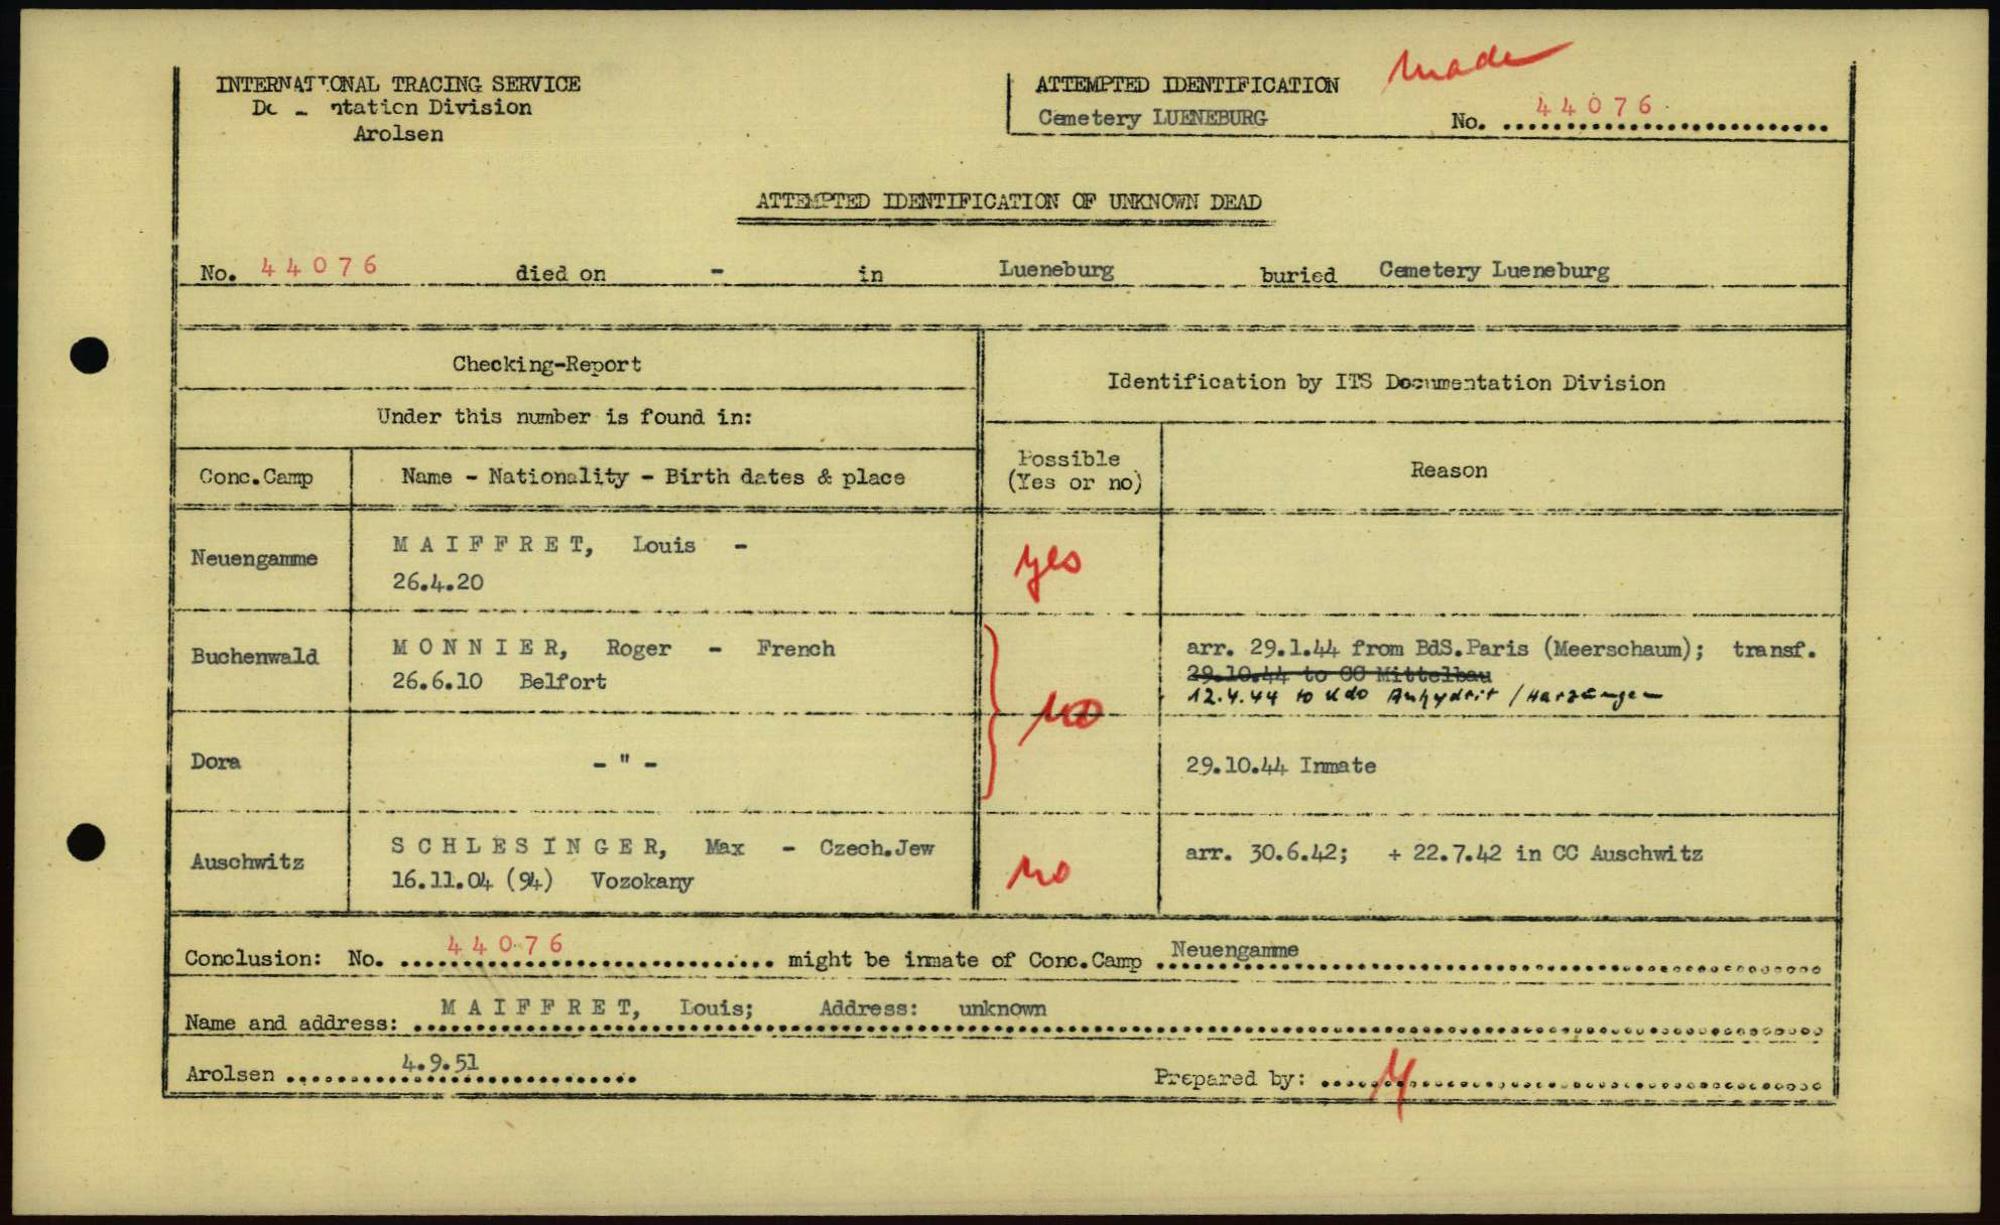 INTERNATIONAL TRACING SERVICE
ntation Division
Arolsen
ATTEMPTED IDENTIFICATION made
Cemetery LUENEBURG No. 44076
ATTEMPTED IDENTIFICATION OF UNKNOWN DEAD
No. 44076 died on - in Lueneburg buried Cemetery Lueneburg
Checking-Report
Identification by ITS Documentation Division
Under this number is found in:
Conc.Camp Name - Nationality - Birth dates & place Possible (Yes or no) Reason
Neuengamme MAIFFRET, Louis - yes
26.4.20
Buchenwald MONNIER, Roger - French arr. 29.1.44 from BdS.Paris (Meerschaum); transf.
26.6.10 Belfort 29.10.44 to CC Mittelbau
12.4.44 to Kdo Anhydrit / Harzungen
no
Dora - " - 29.10.44 Inmate
Auschwitz SCHLESINGER, Max - Czech.Jew no arr. 30.6.42; + 22.7.42 in CC Auschwitz
16.11.04 (94) Vozokany
Conclusion: No. 44076 might be inmate of Conc.Camp Neuengamme
Name and address: MAIFFRET, Louis; Address: unknown
Arolsen 4.9.51 Prepared by: